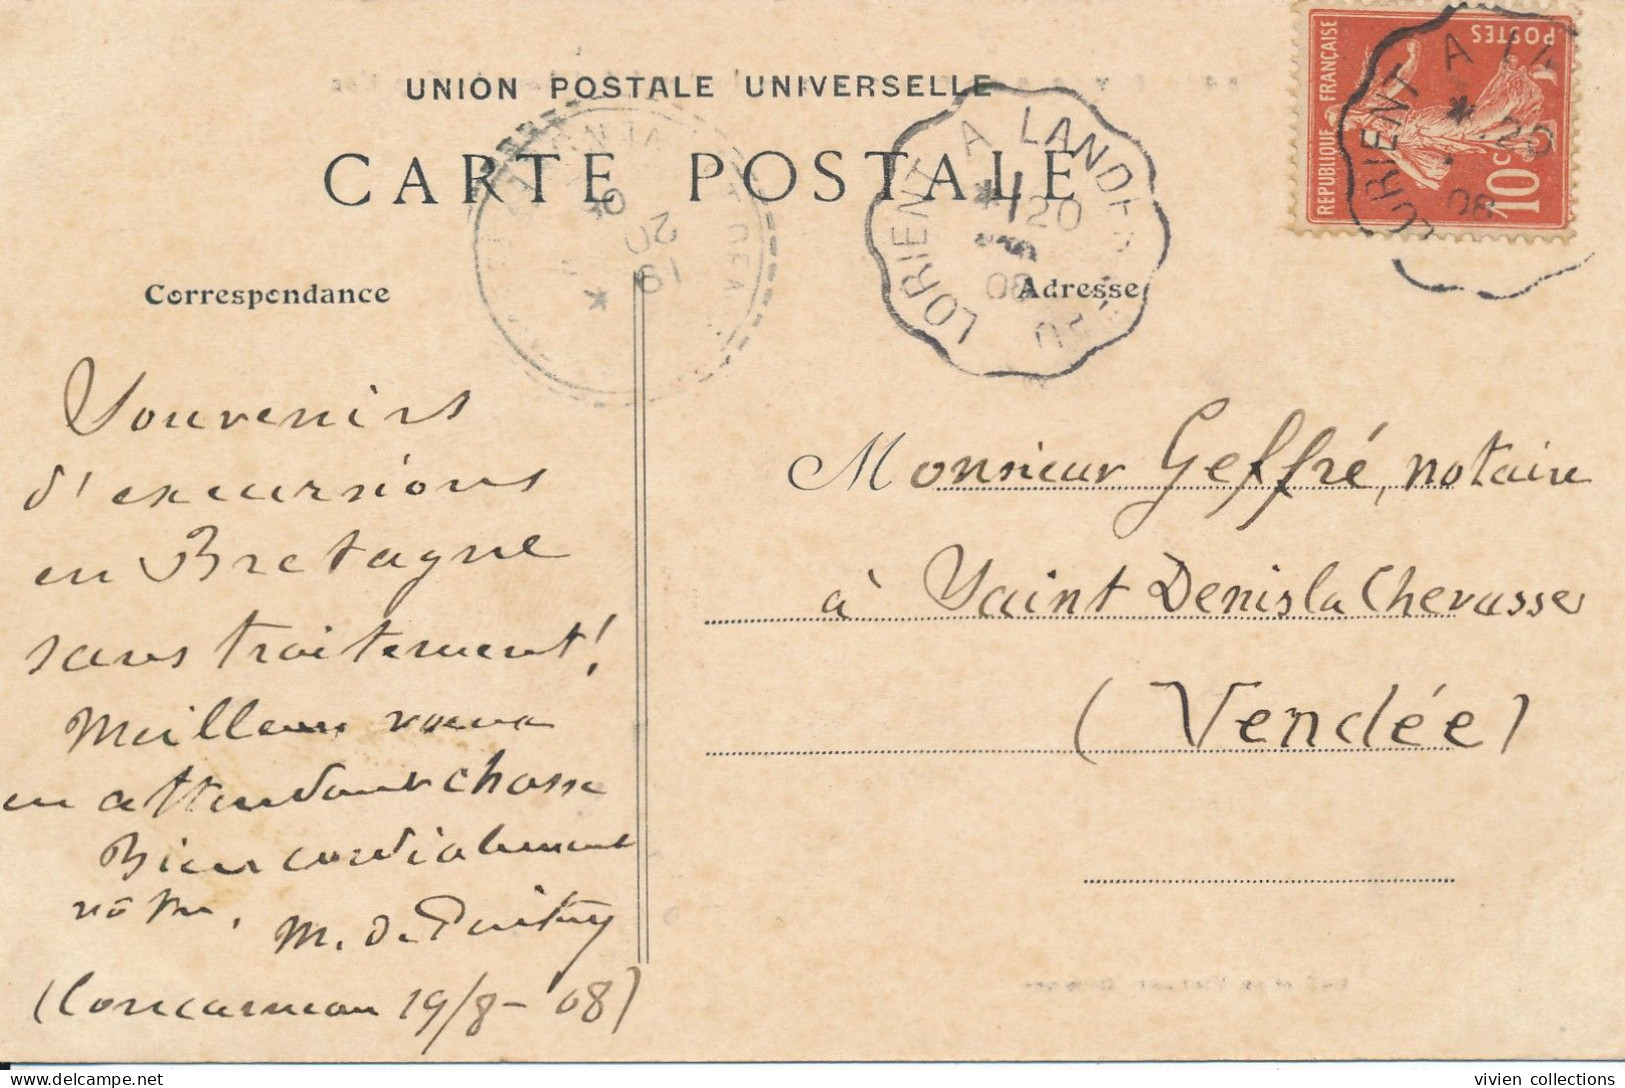 UNION POSTALE UNIVERSELLE
CARTE POSTALE
LORIENT A LANDERNEAU
20
08
20
19
REPUBLIQUE FRANÇAISE
POSTES
10 C
LORIENT A LA
20
08
Correspondance
Adresse
Souvenirs
d'excursions
en Bretagne
sans traitement!
Meilleurs vœux
en attendant chasse
Bien cordialement
vôtre.
M. de
(Concarneau 19/8-08)
Monsieur Geffré, notaire
à Saint Denis la Chevasse
(Vendée)
vivien collections